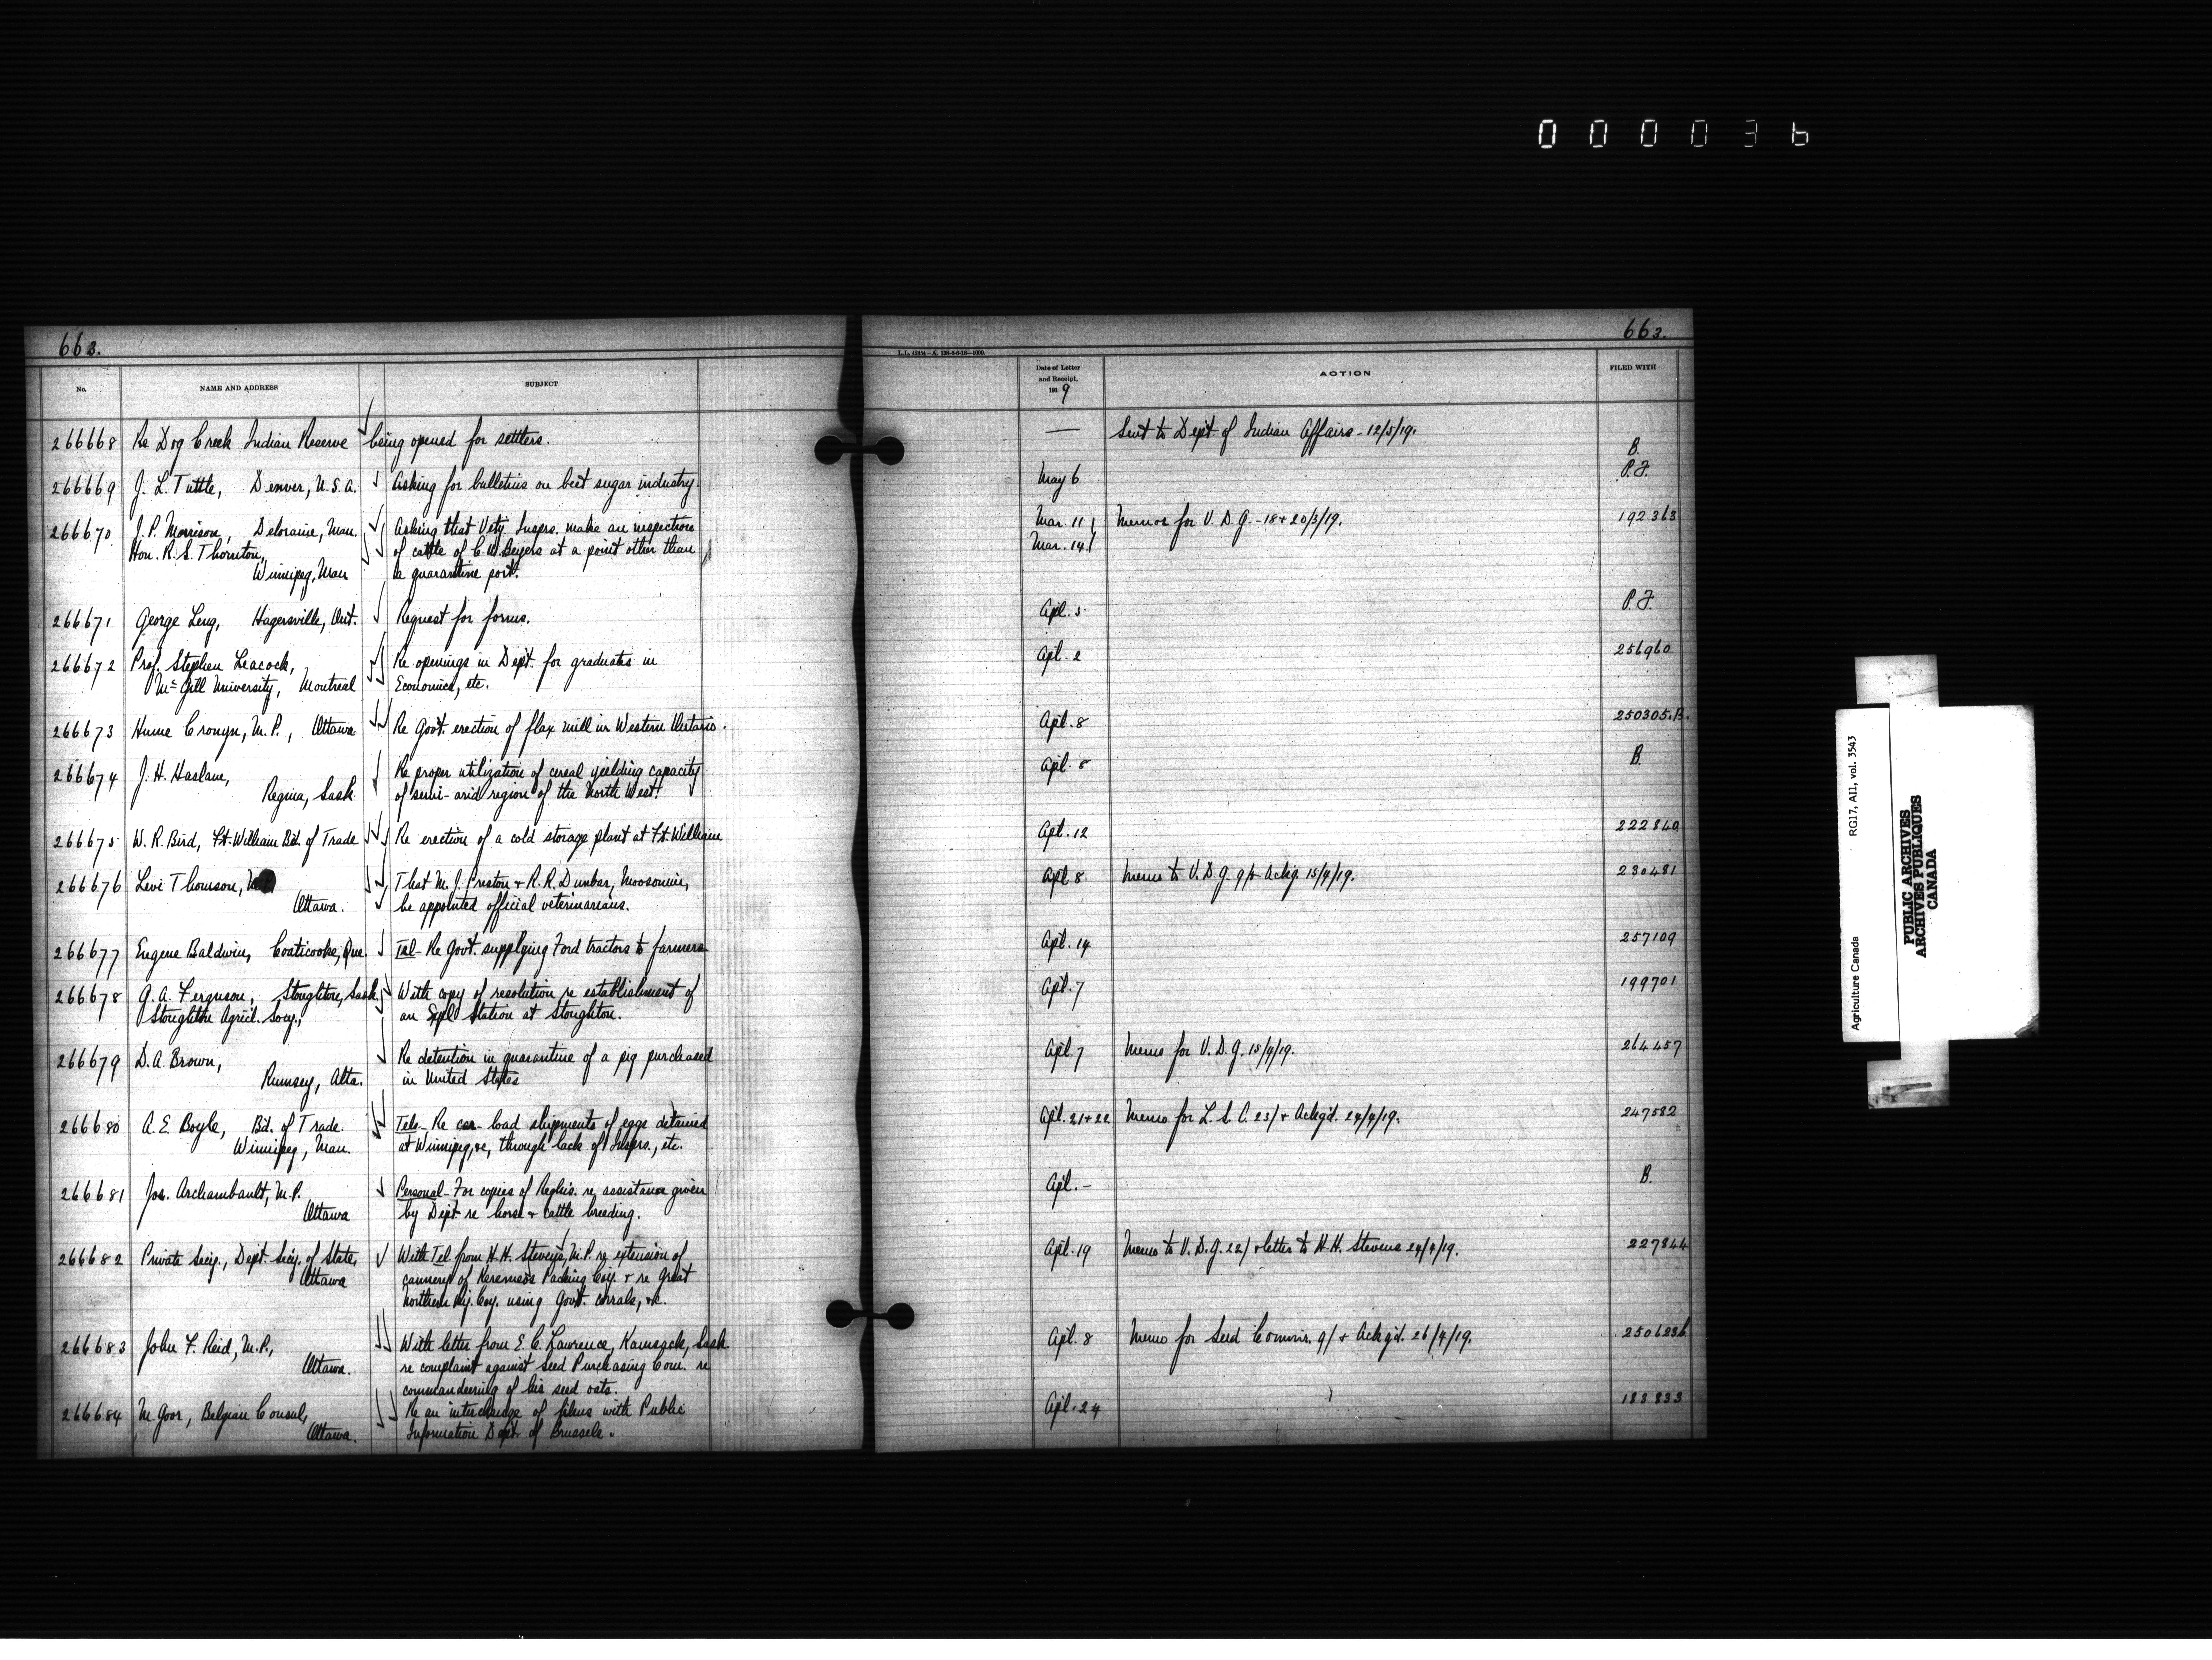 000036
663.
663.
No.
NAME AND ADDRESS
SUBJECT
Date of Letter
and Receipt,
1919
ACTION
FILED WITH
266668 Re Dog Creek Indian Reserve being opened for settlers. — Sent to Dept of Indian Affairs - 12/5/19. B.
266669 J. L. Tuttle, Denver, U.S.A. Asking for bulletins on beet sugar industry May 6 P.F.
266670 J. P. Morrison, Deloraine, Man. Asking that Vety. Insprs. make an inspection Mar. 11 Memos for V. D. G. - 18 + 20/3/19. 192363
Hon. R. S. Thornton, of cattle of C. W. Beyers at a point other than Mar. 14
Winnipeg, Man a quarantine port.
266671 George Leng, Hagersville, Ont. Request for forms. Apl. 5 P.F.
266672 Prof. Stephen Leacock, Re openings in Dept. for graduates in Apl. 2 256960
McGill University, Montreal Economics, etc.
266673 Hume Cronyn, M.P., Ottawa Re Govt. erection of flax mill in Western Ontario. Apl. 8 250305.B.
266674 J. H. Haslam, Re proper utilization of cereal yielding capacity Apl. 8 B.
Regina, Sask. of semi-arid region of the North West.
266675 W. R. Bird, Ft. William Bd. of Trade Re erection of a cold storage plant at Ft. William Apl. 12 222840
266676 Levi Thomson, That M. J. Preston + R. R. Dunbar, Moosomin, Apl 8 Memo to V. D. G. 9/ + Ackg. 15/4/19. 230481
Ottawa. be appointed official veterinarians.
266677 Eugene Baldwin, Coaticooke, Que. Tel- Re Govt. supplying Ford tractors to farmers Apl. 14 257109
266678 G. A. Ferguson, Stoughton, Sask. With copy of resolution re establishment of Apl. 7 199701
Stoughton Agricl. Socy., an Expl Station at Stoughton.
266679 D. A. Brown, Re detention in quarantine of a pig purchased Apl. 7 Memo for V. D. G. 15/4/19. 264457
Rumsey, Alta. in United States
266680 A. E. Boyle, Bd. of Trade. Tels- Re car-load shipments of eggs detained Apl. 21+22 Memo for L. S. C. 23/ + Ackgd. 24/4/19. 247582
Winnipeg, Man. at Winnipeg, &c, through lack of Insprs., etc.
266681 Jos. Archambault, M.P. Personal- For copies of Reglns. re assistance given Apl. - B.
Ottawa by Dept re horse + cattle breeding.
266682 Private Secy., Dept. Secy. of State, With Tel from H. H. Stevens, M.P. re extension of Apl. 19 Memo to V. D. G. 22/ + letter to H. H. Stevens 24/4/19. 227844
Ottawa cannery of Keremeos Packing Coy. + re Great
Northern Ry. Coy. using Govt. corrals, &c.
266683 John F. Reid, M.P., With letter from E. C. Lawrence, Kamsack, Sask. Apl. 8 Memo for Seed Commr. 9/ + Ackgd. 26/4/19. 250623b
Ottawa. re complaint against Seed Purchasing Com. re
commandeering of his seed oats.
266684 M. Goor, Belgian Consul, Re an interchange of films with Public Apl. 24 183833
Ottawa. Information Dept. of Brussels.
Agriculture Canada RG17, AI1, vol. 3543
PUBLIC ARCHIVES
ARCHIVES PUBLIQUES
CANADA